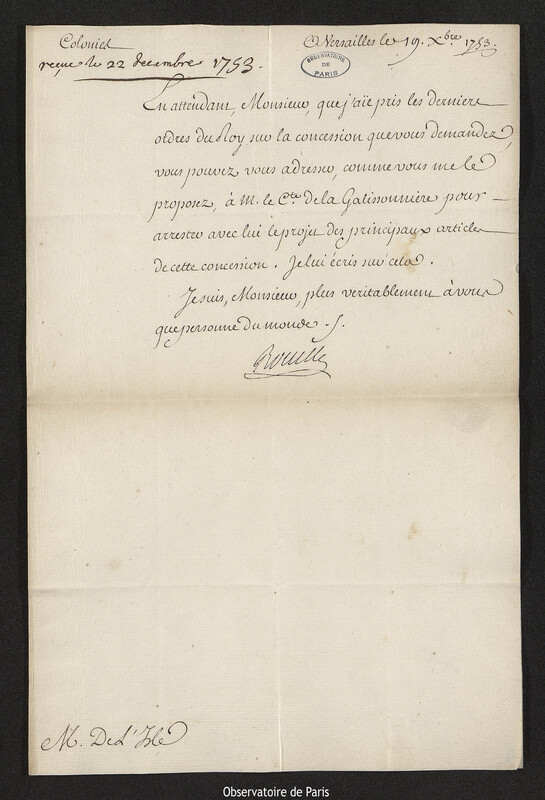 Colonies
A Versailles le 19. Xbre. 1753.
reçue le 22 decembre 1753.
OBSERVATOIRE
DE
PARIS
En attendant, Monsieur, que j'aïe pris les derniers
ordres du Roy sur la concession que vous demandez,
vous pouvez vous adresser, comme vous me le
proposez, à M. le Cte. de la Galissonnière pour
arrester avec lui le projet des principaux articles
de cette concession. Je lui écris sur cela.
Je suis, Monsieur, plus veritablement à vous
que personne du monde ./.
Rouillé
M. De L'Isle
Observatoire de Paris